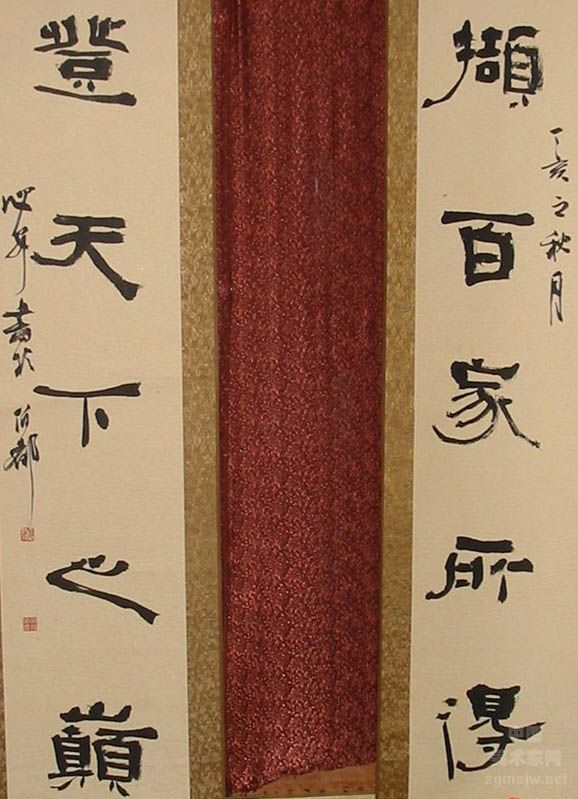 丁亥之秋月
擷百家所得
登天下之巔
書於
中国
美术家网
zgmsjw.net